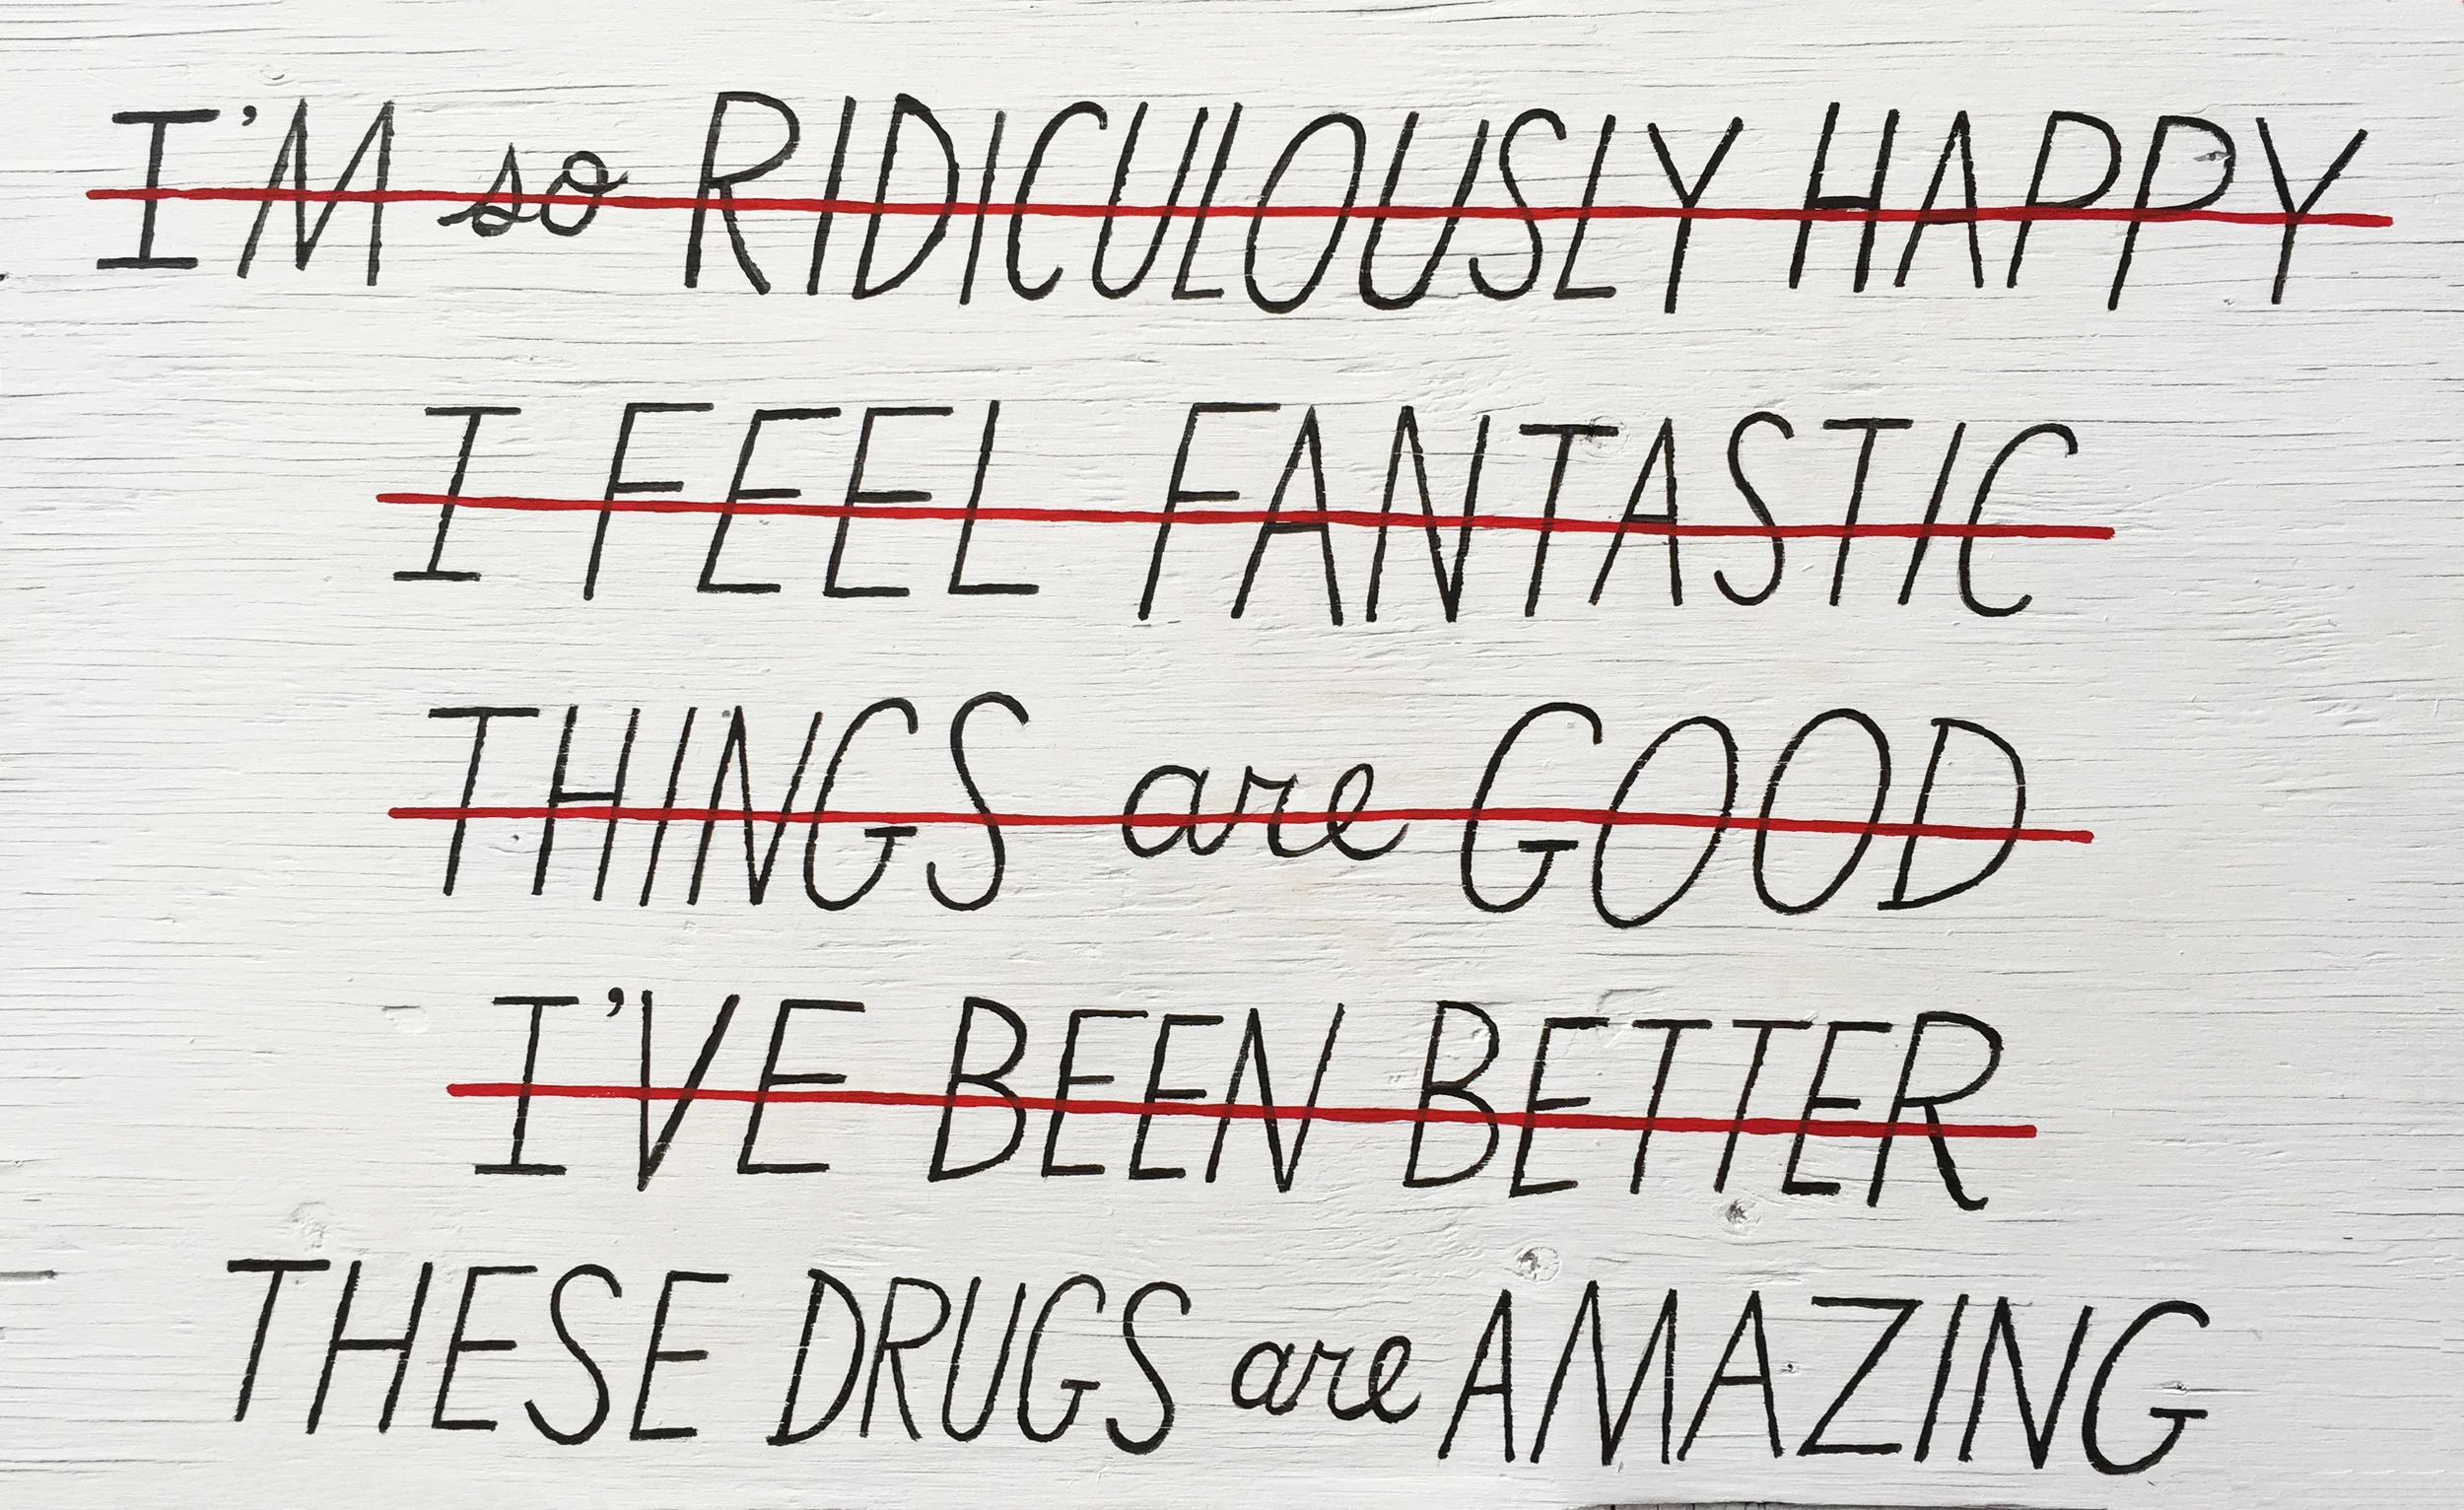 I'M so RIDICULOUSLY HAPPY
I FEEL FANTASTIC
THINGS are GOOD
I'VE BEEN BETTER
THESE DRUGS are AMAZING